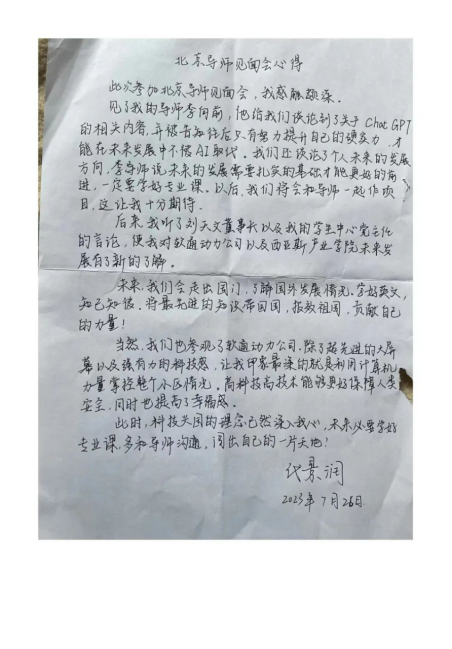 北京导师见面会心得
此次参加北京导师见面会，我感触颇深。
见了我的导师李向前，他给我们谈论到了关于Chat GPT
的相关内容，并警告知往后只有努力提升自己的硬实力，才
能在未来发展中不被AI取代。我们还谈论了个人未来的发展
方向，李导师说未来的发展需要扎实的基础才能更好的前
进，一定要学好专业课。以后，我们将会和导师一起作项
目，这让我十分期待。
后来，我听了刘天文董事长以及我的学生中心党主任的
言论，使我对软通动力公司以及西亚斯产业学院未来发
展有了新的了解。
未来，我们会走出国门，了解国外发展情况。学好英文，
知己知彼，将最先进的知识带回国，报效祖国，贡献自己
的力量！
当然，我们也参观了软通动力公司。除了超先进的大屏
幕以及强有力的科技感，让我印象最深的就是利用计算机
力量掌控整个小区情况。高科技高技术能够更好保障人类
安全，同时也提高了幸福感。
此时，科技兴国的理念已然深入我心，未来必要学好
专业课，多和导师沟通，闯出自己的一片天地！
代景润
2023年7月26日